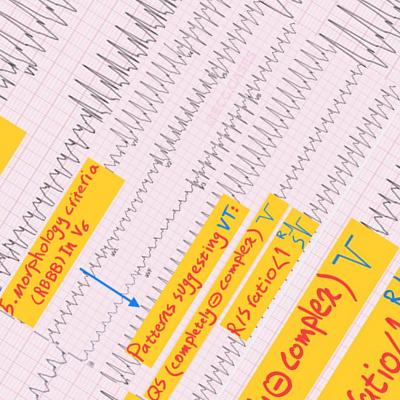 5. morphology criteria
(RBBB) In V6
Patterns suggesting VT:
QS (completely ⊖ complex)
R/S ratio <1
R
S
⊖ complex)
atio <1
R